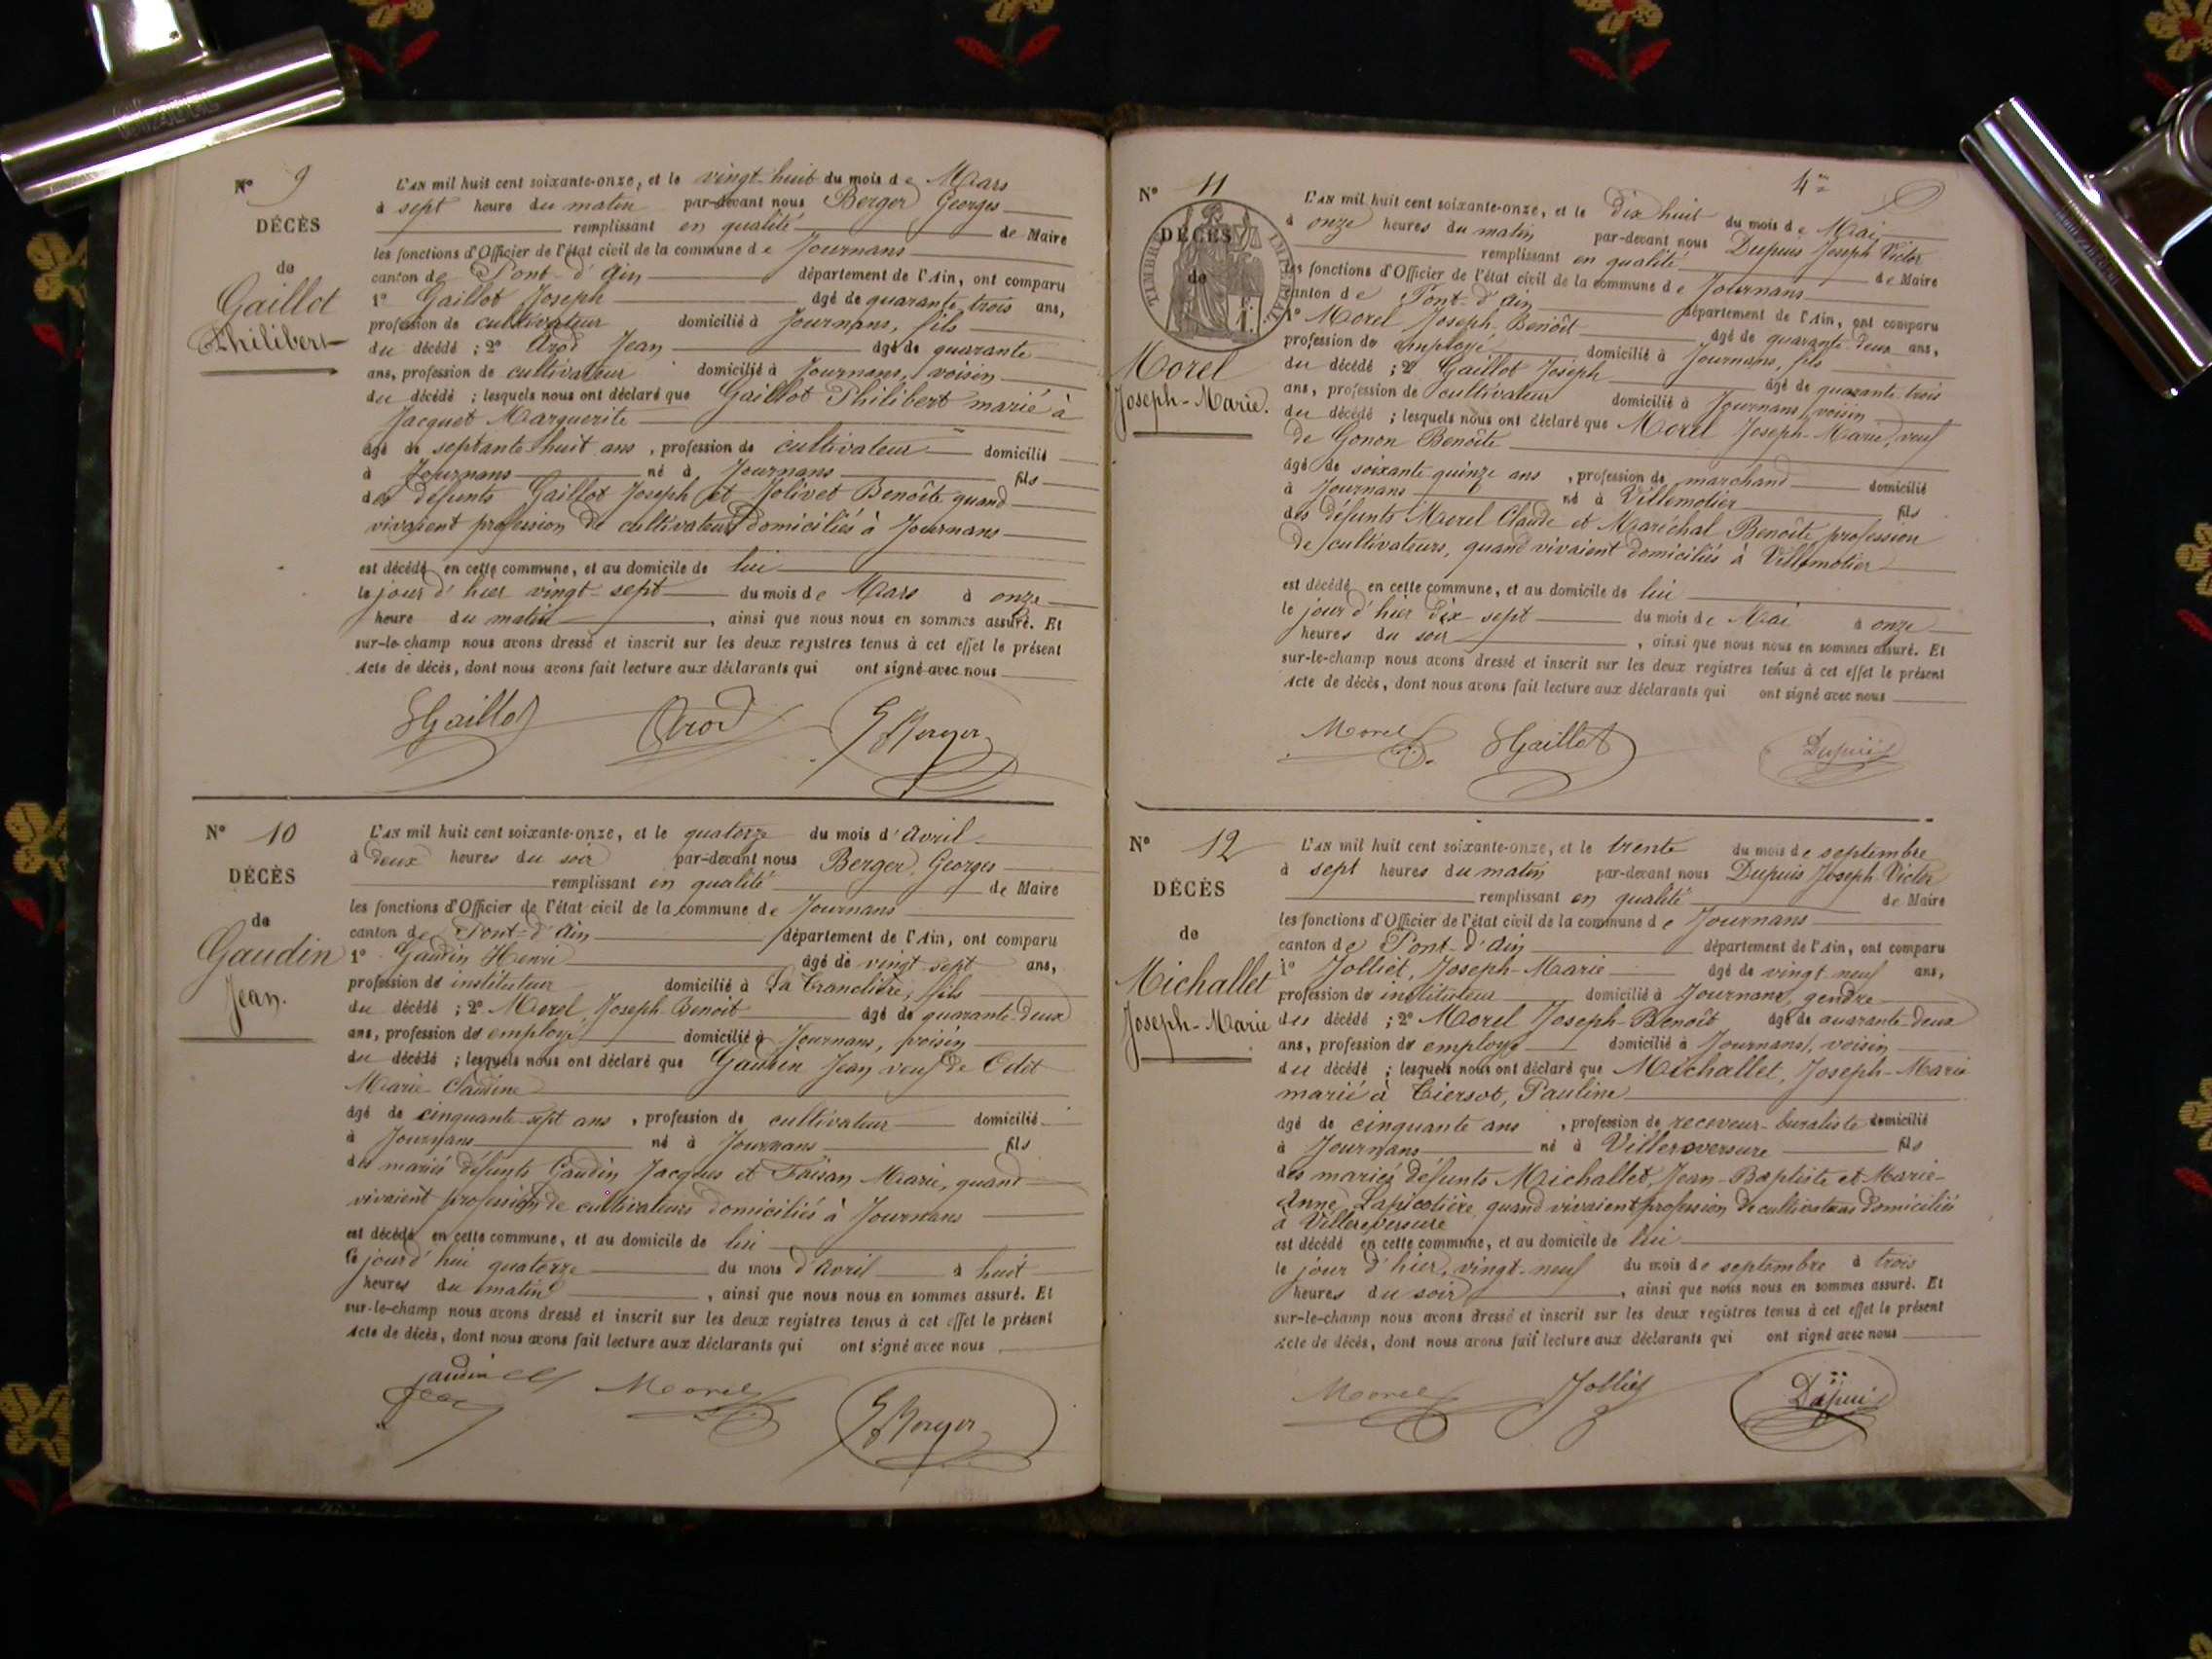 N° 9
DÉCÈS
de
Gaillot
Philibert
L'AN mil huit cent soixante-onze, et le vingt-huit du mois de Mars
à sept heure du matin par-devant nous Berger Georges
remplissant en qualité de Maire
les fonctions d'Officier de l'état civil de la commune de Journans
canton de Pont-d'Ain département de l'Ain, ont comparu
1° Gaillot Joseph âgé de quarante trois ans,
profession de cultivateur domicilié à Journans, fils
du décédé ; 2° Arod Jean âgé de quarante
ans, profession de cultivateur domicilié à Journans, voisin
du décédé ; lesquels nous ont déclaré que Gaillot Philibert marié à
Jacquet Marguerite
âgé de septante-huit ans, profession de cultivateur domicilié
à Journans né à Journans fils
des défunts Gaillot Joseph et Jolivet Benoîte quand
vivaient profession de cultivateurs domiciliés à Journans
est décédé en cette commune, et au domicile de lui
le jour d'hier vingt-sept du mois de Mars à onze
heure du matin, ainsi que nous nous en sommes assuré. Et
sur-le-champ nous avons dressé et inscrit sur les deux registres tenus à cet effet le présent
Acte de décès, dont nous avons fait lecture aux déclarants qui ont signé avec nous
JGaillot Arod G Berger
N° 10
DÉCÈS
de
Gaudin
Jean.
L'AN mil huit cent soixante-onze, et le quatorze du mois d'Avril
à deux heures du soir par-devant nous Berger, Georges
remplissant en qualité de Maire
les fonctions d'Officier de l'état civil de la commune de Journans
canton de Pont-d'Ain département de l'Ain, ont comparu
1° Gaudin Henri âgé de vingt sept ans,
profession de instituteur domicilié à La Tranclière, fils
du décédé ; 2° Morel Joseph Benoît âgé de quarante-deux
ans, profession de employé domicilié à Journans, voisin
du décédé ; lesquels nous ont déclaré que Gaudin Jean veuf de
Marie-Claudine
âgé de cinquante-sept ans, profession de cultivateur domicilié
à Journans né à Journans fils
des mariés défunts Gaudin Jacques et Marie, quand
vivaient profession de cultivateurs domiciliés à Journans
est décédé en cette commune, et au domicile de lui
le jour d'hui quatorze du mois d'Avril à huit
heures du matin, ainsi que nous nous en sommes assuré. Et
sur-le-champ nous avons dressé et inscrit sur les deux registres tenus à cet effet le présent
Acte de décès, dont nous avons fait lecture aux déclarants qui ont signé avec nous
gaudin Morel G Berger
4
N° 11
DÉCÈS
de
TIMBRE IMPÉRIAL
1 F.
Morel
Joseph-Marie.
L'AN mil huit cent soixante-onze, et le dix huit du mois de Mai
à onze heures du matin par-devant nous Dupuis Joseph Victor
remplissant en qualité de Maire
les fonctions d'Officier de l'état civil de la commune de Journans
canton de Pont-d'Ain département de l'Ain, ont comparu
1° Morel Joseph-Benoît âgé de quarante-deux ans,
profession de employé domicilié à Journans, fils
du décédé ; 2° Gaillot Joseph âgé de quarante-trois
ans, profession de cultivateur domicilié à Journans, voisin
du décédé ; lesquels nous ont déclaré que Morel Joseph-Marie, veuf
de Gonon Benoîte
âgé de soixante quinze ans, profession de marchand domicilié
à Journans né à Villemotier fils
des défunts Morel Claude et Maréchal Benoîte profession
de cultivateurs, quand vivaient domiciliés à Villemotier
est décédé en cette commune, et au domicile de lui
le jour d'hier dix-sept du mois de Mai à onze
heures du soir, ainsi que nous nous en sommes assuré. Et
sur-le-champ nous avons dressé et inscrit sur les deux registres tenus à cet effet le présent
Acte de décès, dont nous avons fait lecture aux déclarants qui ont signé avec nous
Morel JGaillot Dupuis
N° 12
DÉCÈS
de
Michallet
Joseph-Marie
L'AN mil huit cent soixante-onze, et le trente du mois de septembre
à sept heures du matin par-devant nous Dupuis Joseph Victor
remplissant en qualité de Maire
les fonctions d'Officier de l'état civil de la commune de Journans
canton de Pont-d'Ain département de l'Ain, ont comparu
1° Jolliet, Joseph-Marie âgé de vingt neuf ans,
profession de instituteur domicilié à Journans, gendre
du décédé ; 2° Morel Joseph-Benoît âgé de quarante-deux
ans, profession de employé domicilié à Journans, voisin
du décédé ; lesquels nous ont déclaré que Michallet, Joseph-Marie
marié à Tiersot, Pauline
âgé de cinquante ans, profession de receveur-buraliste domicilié
à Journans né à Villereversure fils
des mariés défunts Michallet, Jean-Baptiste et Marie-
Anne Lapicotière quand vivaient profession de cultivateurs domiciliés
à Villereversure
est décédé en cette commune, et au domicile de lui
le jour d'hier, vingt-neuf du mois de septembre à trois
heures du soir, ainsi que nous nous en sommes assuré. Et
sur-le-champ nous avons dressé et inscrit sur les deux registres tenus à cet effet le présent
Acte de décès, dont nous avons fait lecture aux déclarants qui ont signé avec nous
Morel Jolliet Dupuis